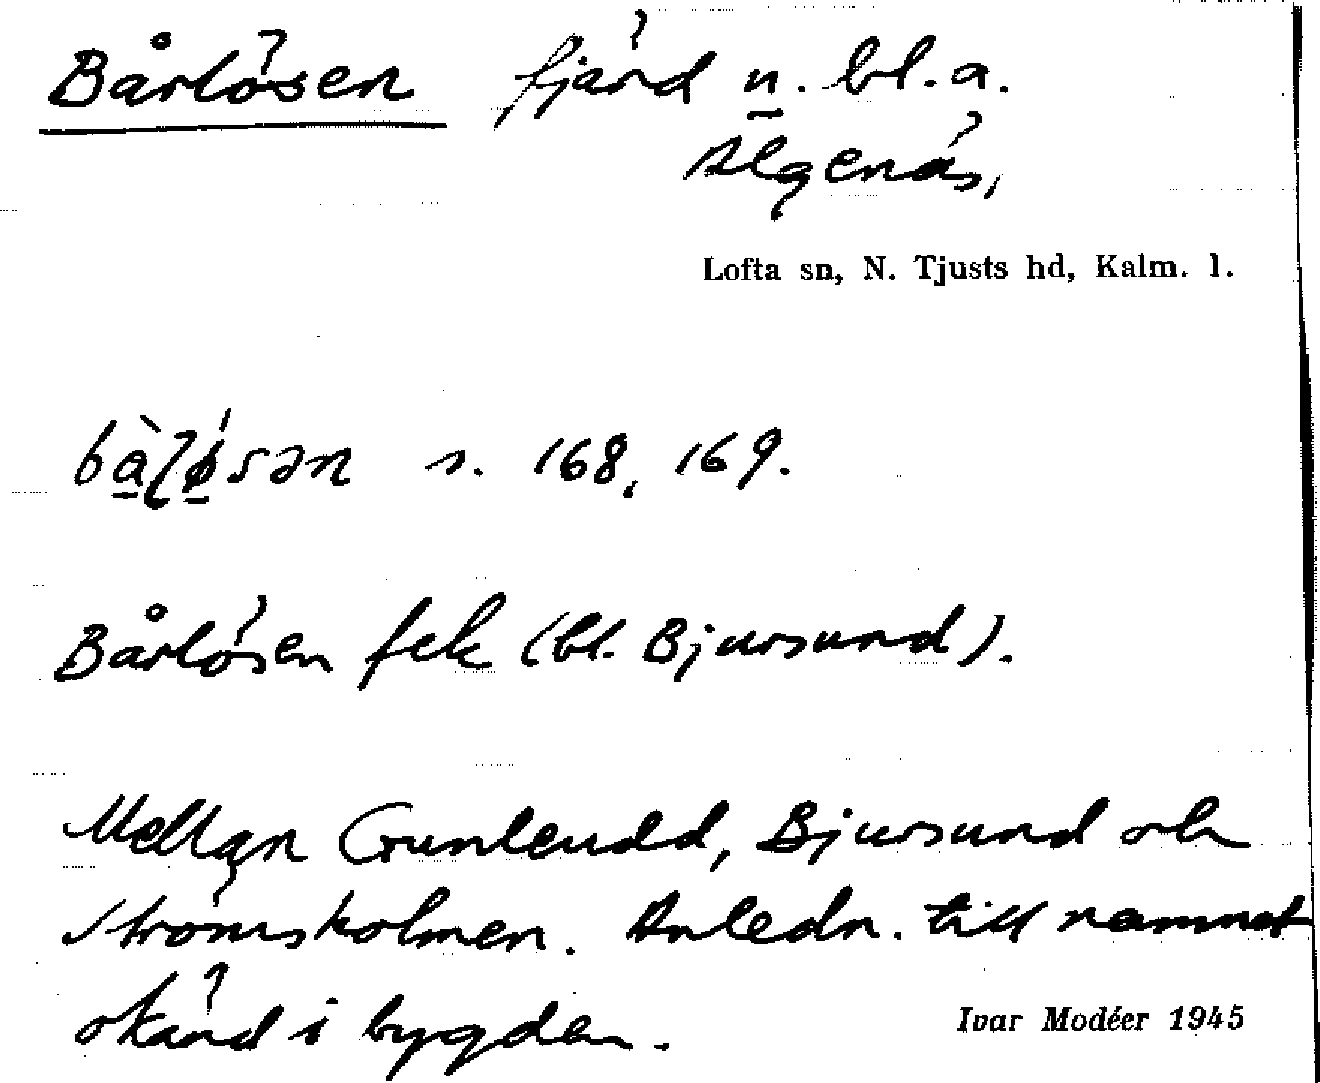 Bårlösen fjärd n. bl.a.
Älgenäs,
Lofta sn, N. Tjusts hd, Kalm. l.
s. 168, 169.
Bårlösen fek (bl. Bjursund).
Mellan Gunleudd, Bjursund och
Strömsholmen. Anledn. till namnet
okänd i bygden.
Ivar Modéer 1945